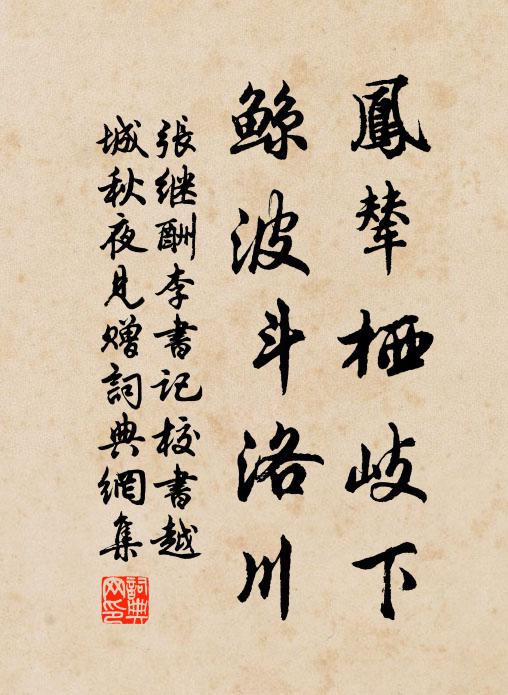 鳳輦栖岐下
鯨波斗洛川
張継酬李書記校書越
城秋夜見贈詞典網集
詞典网印